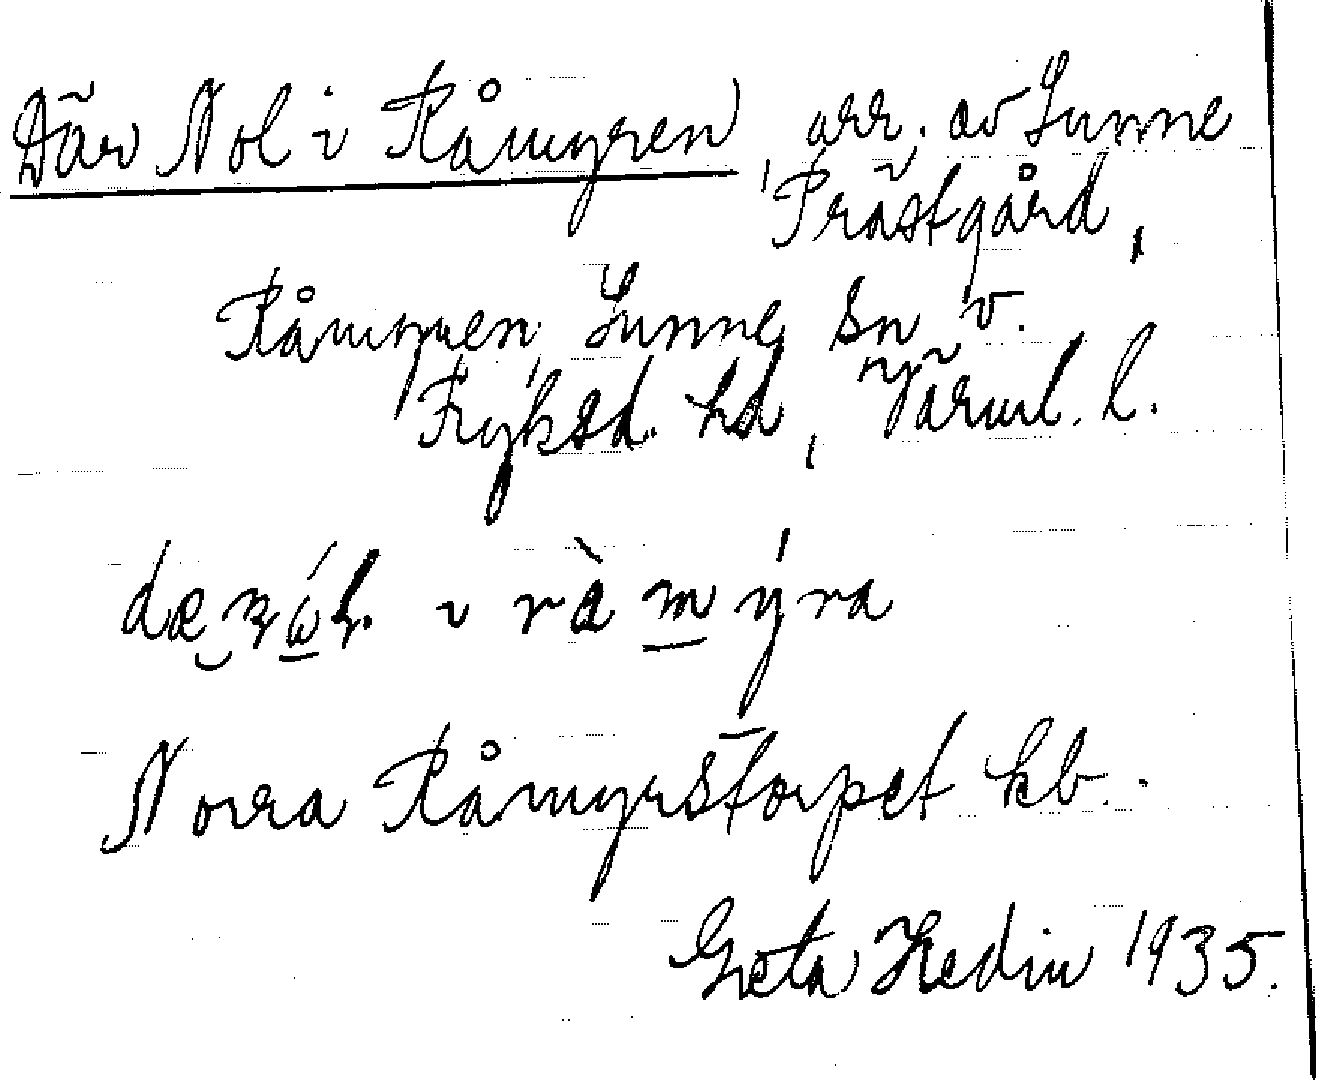 Där Nol i Råmyren, arr. av Sunne
Prästgård,
Råmyren, Sunne sn v.
Fryksd. hd, Värml. l.
i rà m ýra
Norra Råmyrstorpet kb.
Greta Hedin 1935.